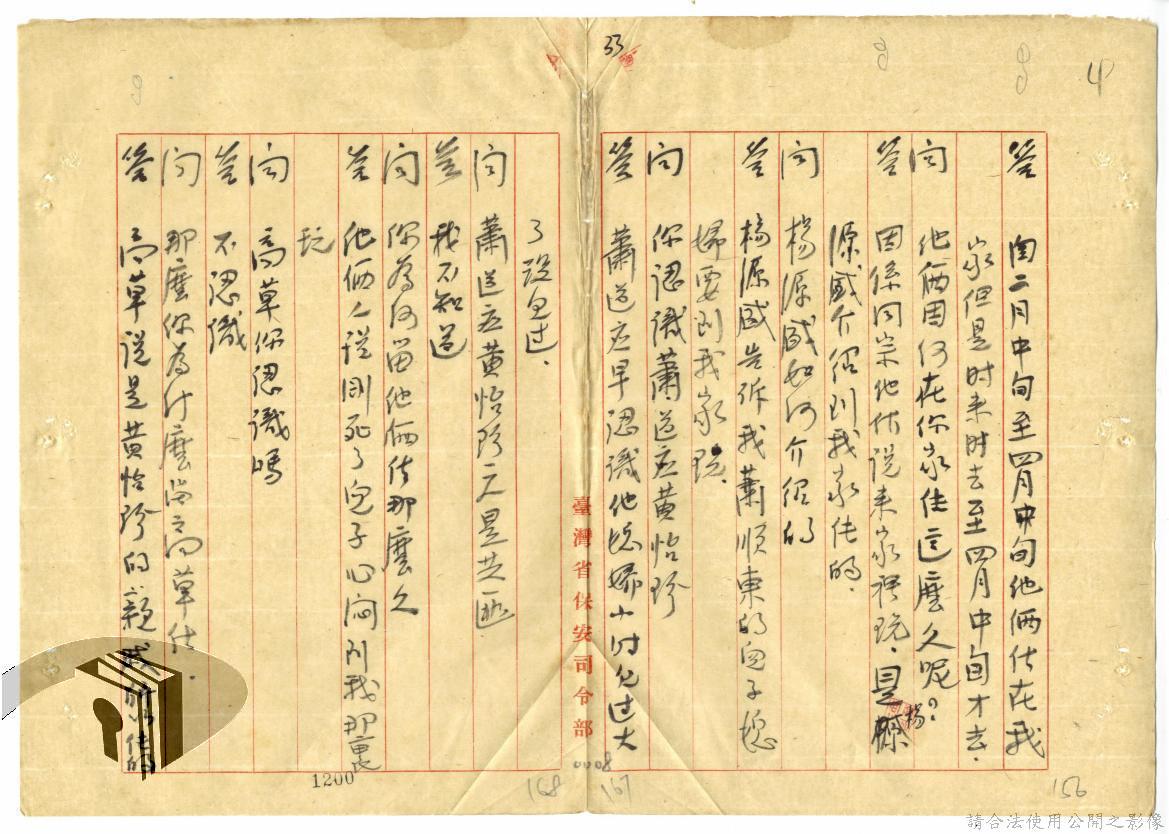 33
答 自二月中旬至四月中旬他倆住在我
家但是时来时去至四月中旬才去.
问 他倆因何在你家住這麼久呢?
答 因係同宗他供说来家裡玩.是楊
源盛介绍到我家住的.
问 楊源盛如何介绍的
答 楊源盛告诉我蕭順東的兒子媳
婦要到我家玩.
问 你認識蕭道应黄怡珍
答 蕭道应早認識他媳婦小时見过大
了没見过.
问 蕭道应黄怡珍二人是共匪
答 我不知道
问 你為何留他倆住那麼久
答 他倆人説剛死了兒子心闷到我那裏
玩
问 高草你認識嗎
答 不認識
问 那麼你為什麼留高草住.
答 高草说是黄怡珍的親戚
臺灣省保安司令部
0008
1200
168
167
156
請合法使用公開之影像